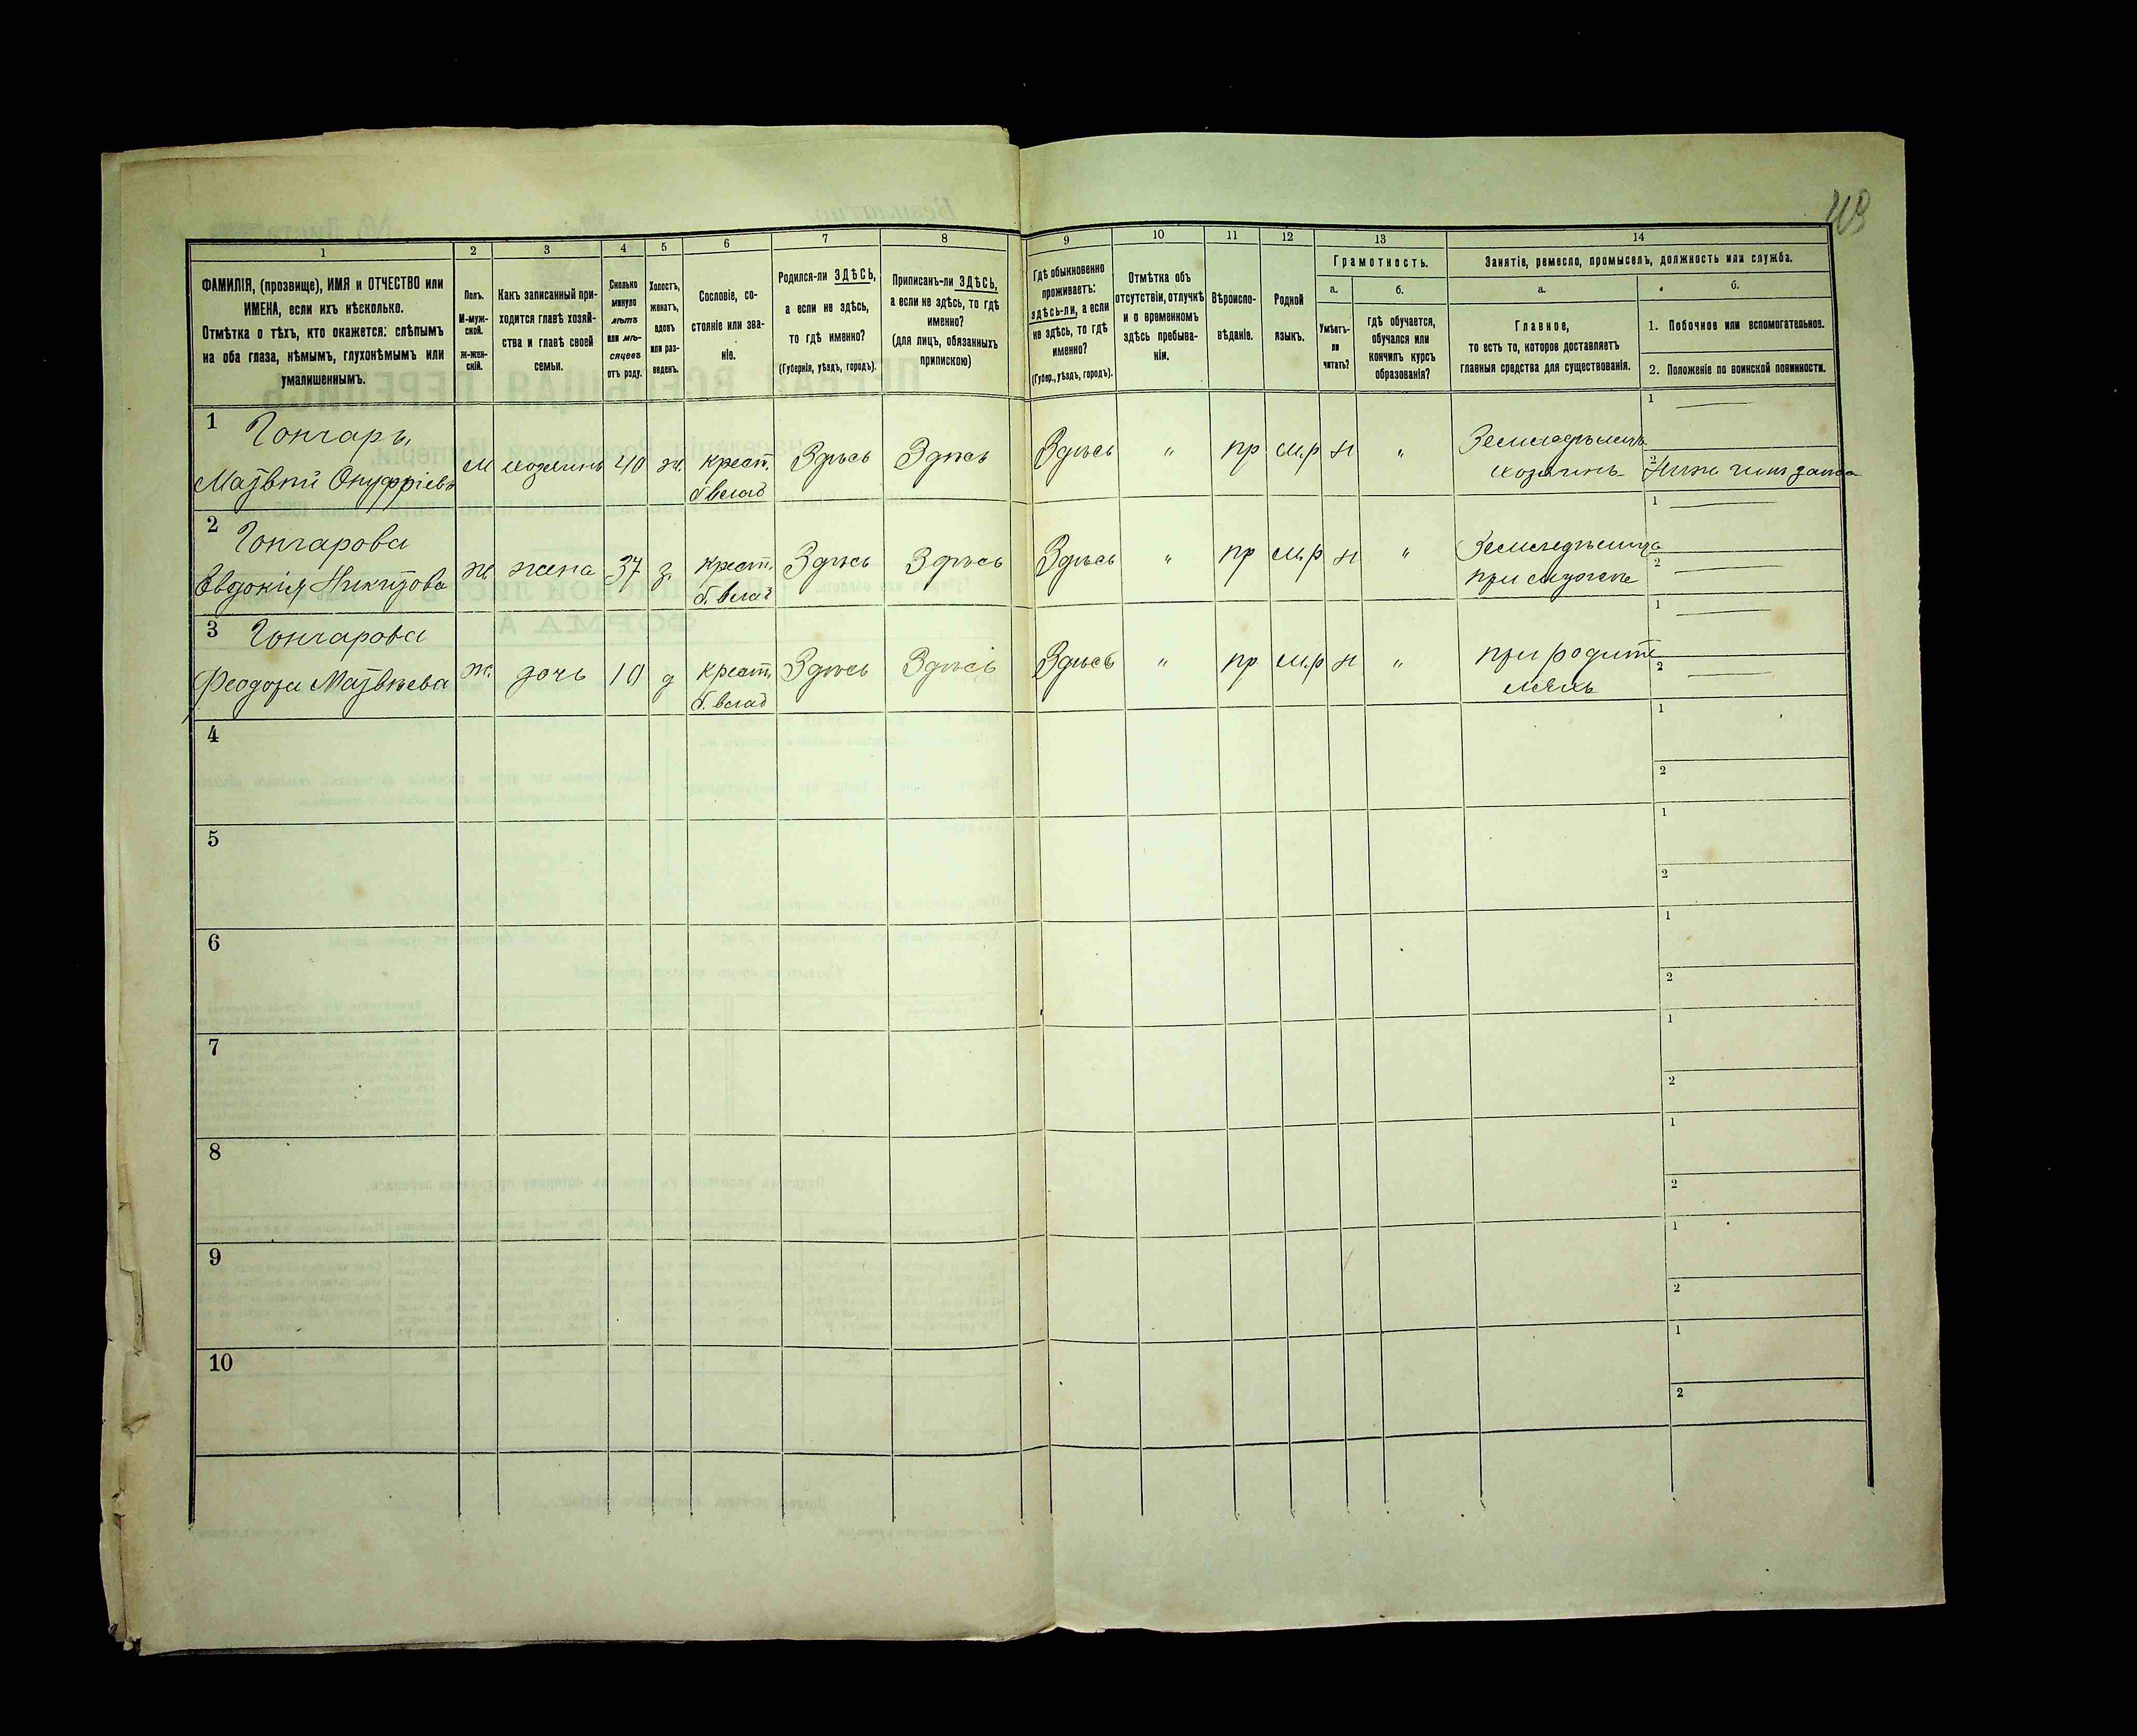 49
1 2 3 4 5 6 7 8 9 10 11 12 13 14
ФАМИЛІЯ, (прозвище), ИМЯ и ОТЧЕСТВО или
ИМЕНА, если ихъ нѣсколько.
Отмѣтка о тѣхъ, кто окажется: слѣпымъ
на оба глаза, нѣмымъ, глухонѣмымъ или
умалишеннымъ.
Полъ.
М-муж-
ской.
ж-жен-
скій.
Какъ записанный при-
ходится главѣ хозяй-
ства и главѣ своей
семьи.
Сколько
минуло
лѣтъ
или мѣ-
сяцевъ
отъ роду.
Холостъ,
женатъ,
вдовъ
или раз-
веденъ.
Сословіе, со-
стояніе или зва-
ніе.
Родился-ли ЗДѢСЬ,
а если не здѣсь,
то гдѣ именно?
(Губернія, уѣздъ, городъ).
Приписанъ-ли ЗДѢСЬ,
а если не здѣсь, то гдѣ
именно?
(для лицъ, обязанныхъ
припискою)
Гдѣ обыкновенно
проживаетъ:
здѣсь-ли, а если
не здѣсь, то гдѣ
именно?
(Губер., уѣздъ, городъ).
Отмѣтка объ
отсутствіи, отлучкѣ
и о временномъ
здѣсь пребыва-
ніи.
Вѣроиспо-
вѣданіе.
Родной
языкъ.
Грамотность.
а.
Умѣетъ-
ли
читать?
б.
гдѣ обучается,
обучался или
кончилъ курсъ
образованія?
Занятіе, ремесло, промыселъ, должность или служба.
а.
Главное,
то есть то, которое доставляетъ
главныя средства для существованія.
б.
1. Побочное или вспомогательное.
2. Положеніе по воинской повинности.
1 Гончаръ
Матвѣй Онуфріевъ м хозяинъ 40 ж. крест. Здѣсь Здѣсь Здѣсь " пр м.р н " Земледѣлецъ 1
б. влад хозяинъ 2
2 Гончарова
Евдокія Никитова ж. жена 37 з. крест. Здѣсь Здѣсь Здѣсь " пр м.р н " Земледѣлица 1
б. влад при мужѣ 2
3 Гончарова
Феодора Матвѣева ж. дочь 10 д крест. Здѣсь Здѣсь Здѣсь " пр м.р н " при родите 1
б. влад ляхъ 2
4 1
2
5 1
2
6 1
2
7 1
2
8 1
2
9 1
2
10 1
2